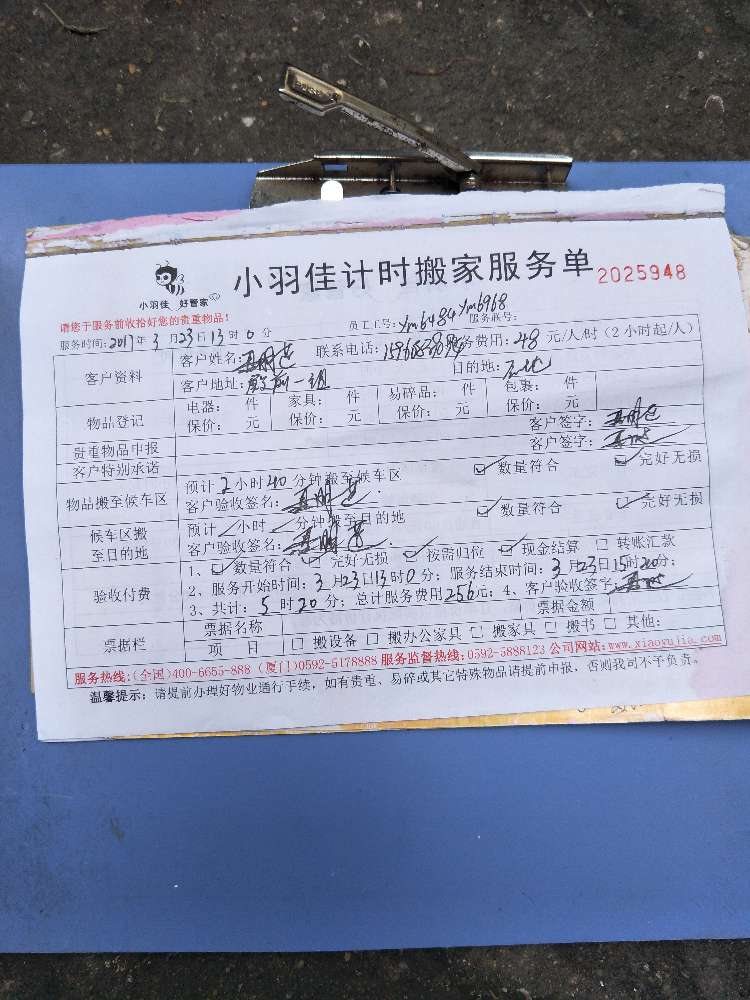 小羽佳 好管家
小羽佳计时搬家服务单 2025948
请您于服务前收拾好您的贵重物品!
员工工号: Ym6484 Ym6968 服务账号:
服务时间: 2017年3月23日13时0分
客户资料 客户姓名: 联系电话: 服务费用: 48元/人/时 (2小时起/人)
客户地址: 前一组 目的地:
物品登记 电器: 件 家具: 件 易碎品: 件 包裹: 件
保价: 元 保价: 元 保价: 元 保价: 元
贵重物品申报 客户签字:
客户特别承诺 客户签字:
物品搬至候车区 预计2小时40分钟搬至候车区 ☑数量符合 ☑完好无损
客户验收签名:
候车区搬至目的地 预计/小时/分钟搬至目的地 ☑数量符合 ☑完好无损
客户验收签名:
验收付费 1、☑数量符合 ☑完好无损 ☑按需归位 ☑现金结算 □转账汇款
2、服务开始时间: 3月23日13时0分; 服务结束时间: 3月23日15时20分;
3、共计: 5时20分; 总计服务费用256元; 4、客户验收签字:
票据栏 票据名称 票据金额
项 目 □搬设备 □搬办公家具 □搬家具 □搬书 □其他:
服务热线:(全国)400-6655-888 (厦门)0592-5178888 服务监督热线:0592-5888123 公司网站:www.xiaoyujia.com
温馨提示: 请提前办理好物业通行手续, 如有贵重、易碎或其它特殊物品请提前申报, 否则我司不予负责。